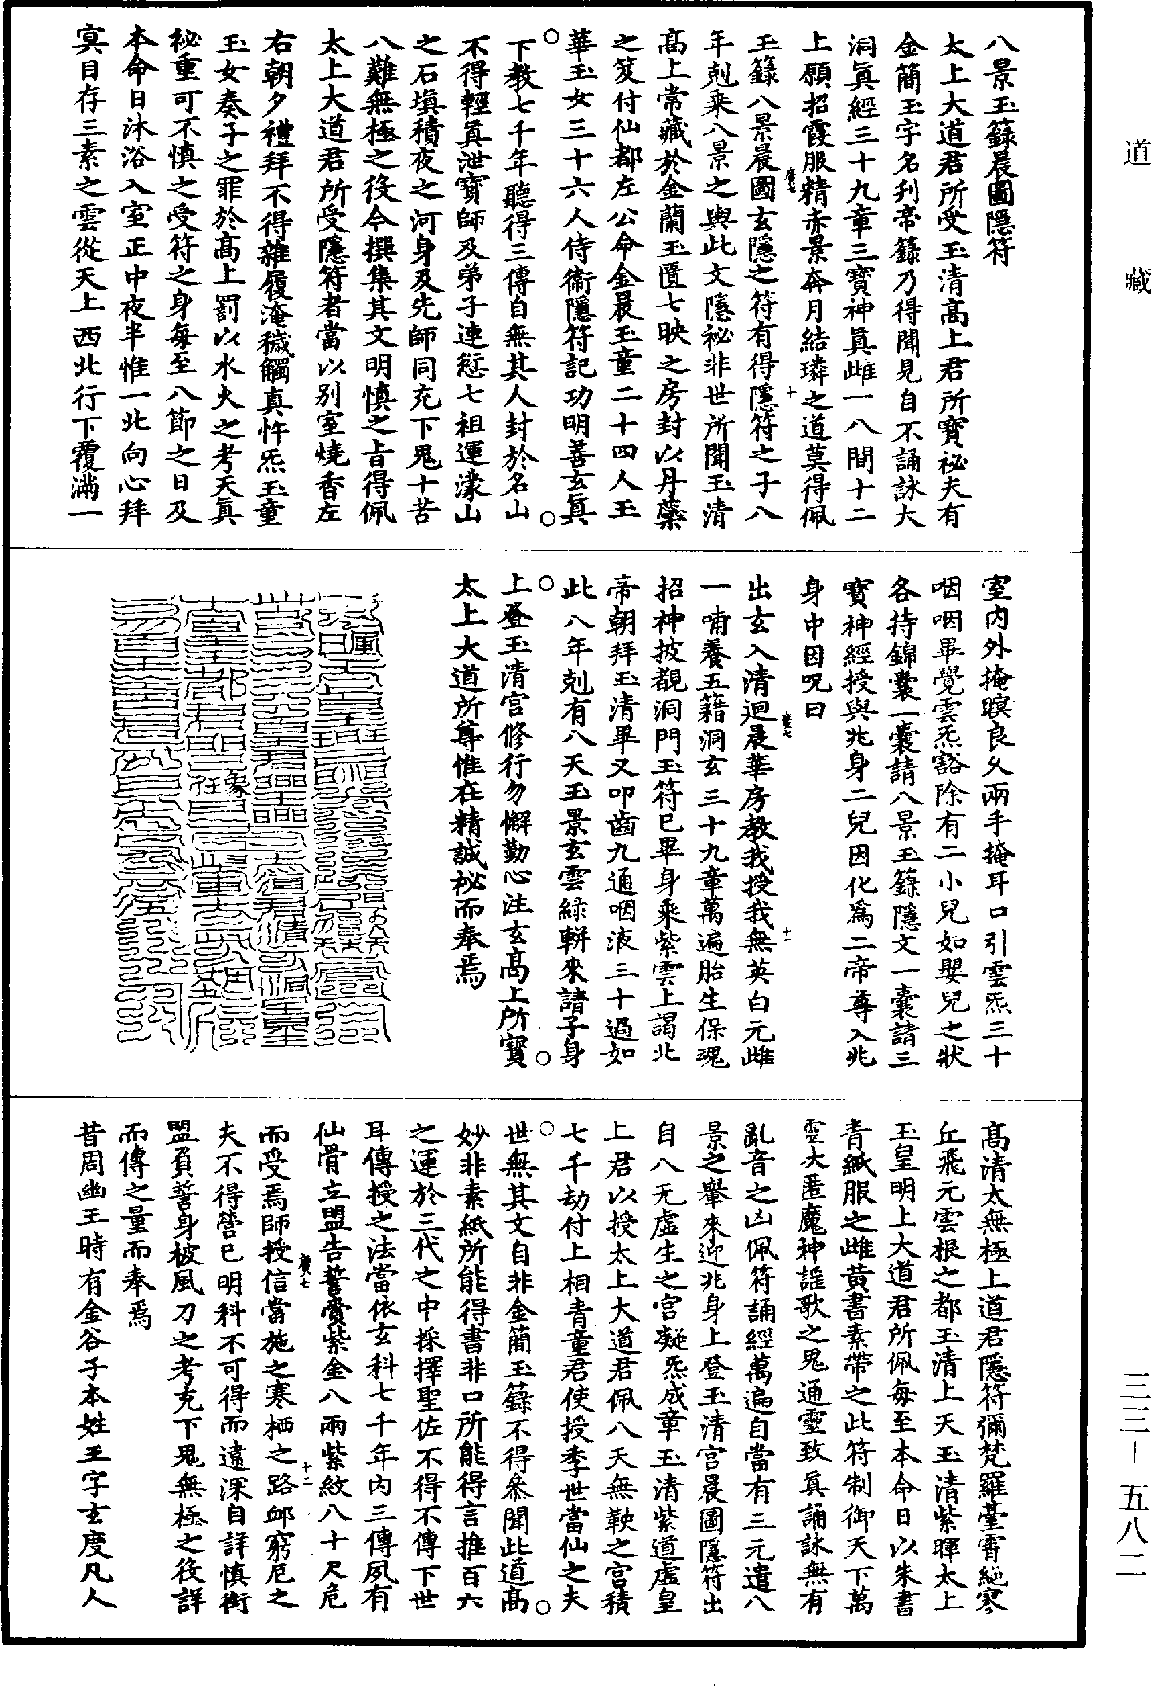 道藏
三三—五八二
八景玉籙晨圖隱符
太上大道君所受玉清高上君所寶祕夫有
金簡玉字名刋帝籙乃得聞見自不誦詠大
洞眞經三十九章三寶神眞雌一八間十二
上願招霞服精赤景奔月結璘之道莫得佩
廣七
十
玉籙八景晨圖玄隱之符有得隱符之子八
年剋乘八景之輿此文隱祕非世所聞玉清
高上常藏於金蘭玉匱七映之房封以丹藥
之笈付仙都左公命金晨玉童二十四人玉
華玉女三十六人侍衞隱符記功明善玄眞
下教七千年聽得三傳自無其人封於名山
不得輕眞泄寶師及弟子連愆七祖運濛山
之石塡積夜之河身及先師同充下鬼十苦
八難無極之役今撰集其文明愼之旨得佩
太上大道君所受隱符者當以別室燒香左
右朝夕禮拜不得雜履淹穢觸真忤炁玉童
玉女奏子之罪於高上罰以水火之考天真
祕重可不愼之受符之身每至八節之日及
本命日沐浴入室正中夜半惟一北向心拜
冥目存三素之雲從天上西北行下覆滿一
室內外掩暝良久兩手掩耳口引雲炁三十
咽咽畢覺雲炁豁除有二小兒如嬰兒之狀
各持錦囊一囊請八景玉籙隱文一囊請三
寶神經授與兆身二兒因化爲二帝尊入兆
身中因呪曰
廣七
十一
出玄入清迴晨華房教我授我無英白元雌
一哺養五籍洞玄三十九章萬遍胎生保魂
招神披覩洞門玉符已畢身乘紫雲上謁北
帝朝拜玉清畢又叩齒九通咽液三十過如
此八年剋有八天玉景玄雲綠軿來請子身
上登玉清宮修行勿懈勤心注玄高上所寶
太上大道所尊惟在精誠祕而奉焉
高清太無極上道君隱符彌梵羅臺霄絕寥
丘飛元雲根之都玉清上天玉清紫暉太上
玉皇明上大道君所佩每至本命日以朱書
青紙服之雌黃書素帶之此符制御天下萬
靈大匿魔神謠歌之鬼通靈致眞誦詠無有
亂音之凶佩符誦經萬遍自當有三元遣八
景之轝來迎兆身上登玉清宮晨圖隱符出
自八无虛生之宮凝炁成章玉清紫道虛皇
上君以授太上大道君佩八天無鞅之宮積
七千劫付上相青童君使授季世當仙之夫
世無其文自非金簡玉籙不得叅聞此道高
妙非素紙所能得書非口所能得言推百六
之運於三代之中採擇聖佐不得不傳下世
耳傳授之法當依玄科七千年內三傳夙有
仙骨立盟告誓賫紫金八兩紫紋八十尺危
廣七
十二
而受焉師授信當施之寒栖之路邱窮厄之
夫不得營已明科不可得而遠深自詳愼銜
盟負誓身被風刀之考充下鬼無極之役詳
而傳之量而奉焉
昔周幽王時有金谷子本姓王字玄度凡人